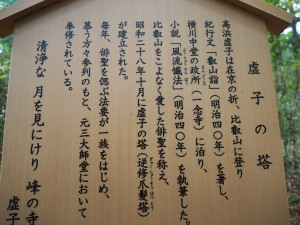 虚子の塔
高浜虚子は在京の折、比叡山に登り
紀行文「叡山詣」(明治四〇年)を著し、
横川中堂の政所(一念寺)に泊り、
小説「風流懺法」(明治四〇年)を執筆した。
比叡山をこよなく愛した俳聖を称え、
昭和二十八年十月に虚子の塔(逆修爪髪塔)
が建立された。
毎年、俳聖を偲ぶ法要が一族をはじめ、
慕う方々参列のもと、元三大師堂において
奉修されている。
清浄な月を見にけり峰の寺
虚子